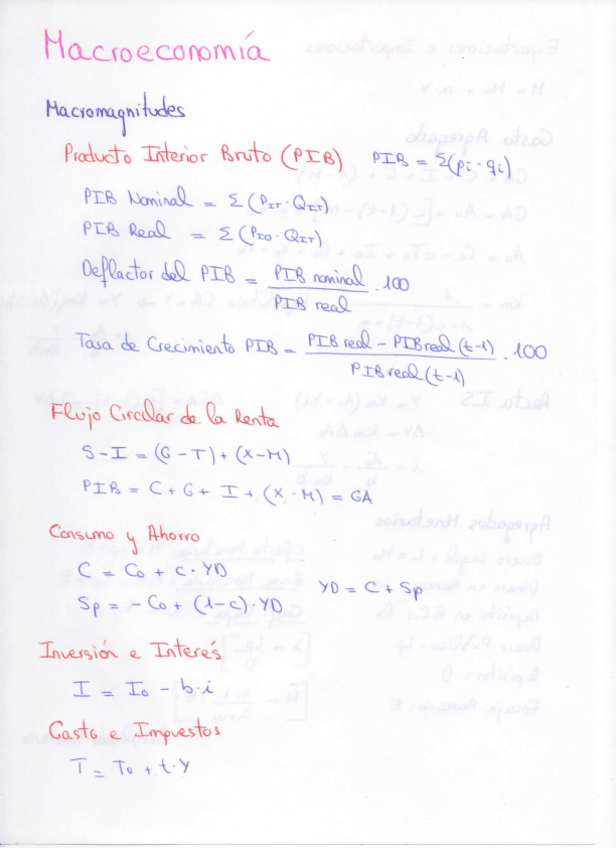 Macroeconomía
Macromagnitudes
Producto Interior Bruto (PIB) PIB = Σ(pi · qi)
PIB Nominal = Σ (P_IT · Q_IT)
PIB Real = Σ (P_I0 · Q_IT)
Deflactor del PIB = PIB nominal / PIB real · 100
Tasa de Crecimiento PIB = PIB real - PIB real (t-1) / PIB real (t-1) · 100
Flujo Circular de la Renta
S - I = (G - T) + (X - M)
PIB = C + G + I + (X - M) = GA
Consumo y Ahorro
C = C₀ + c · YD
YD = C + Sp
Sp = - C₀ + (1 - c) · YD
Inversión e Interés
I = I₀ - b · i
Gasto e Impuestos
T = T₀ + t · Y